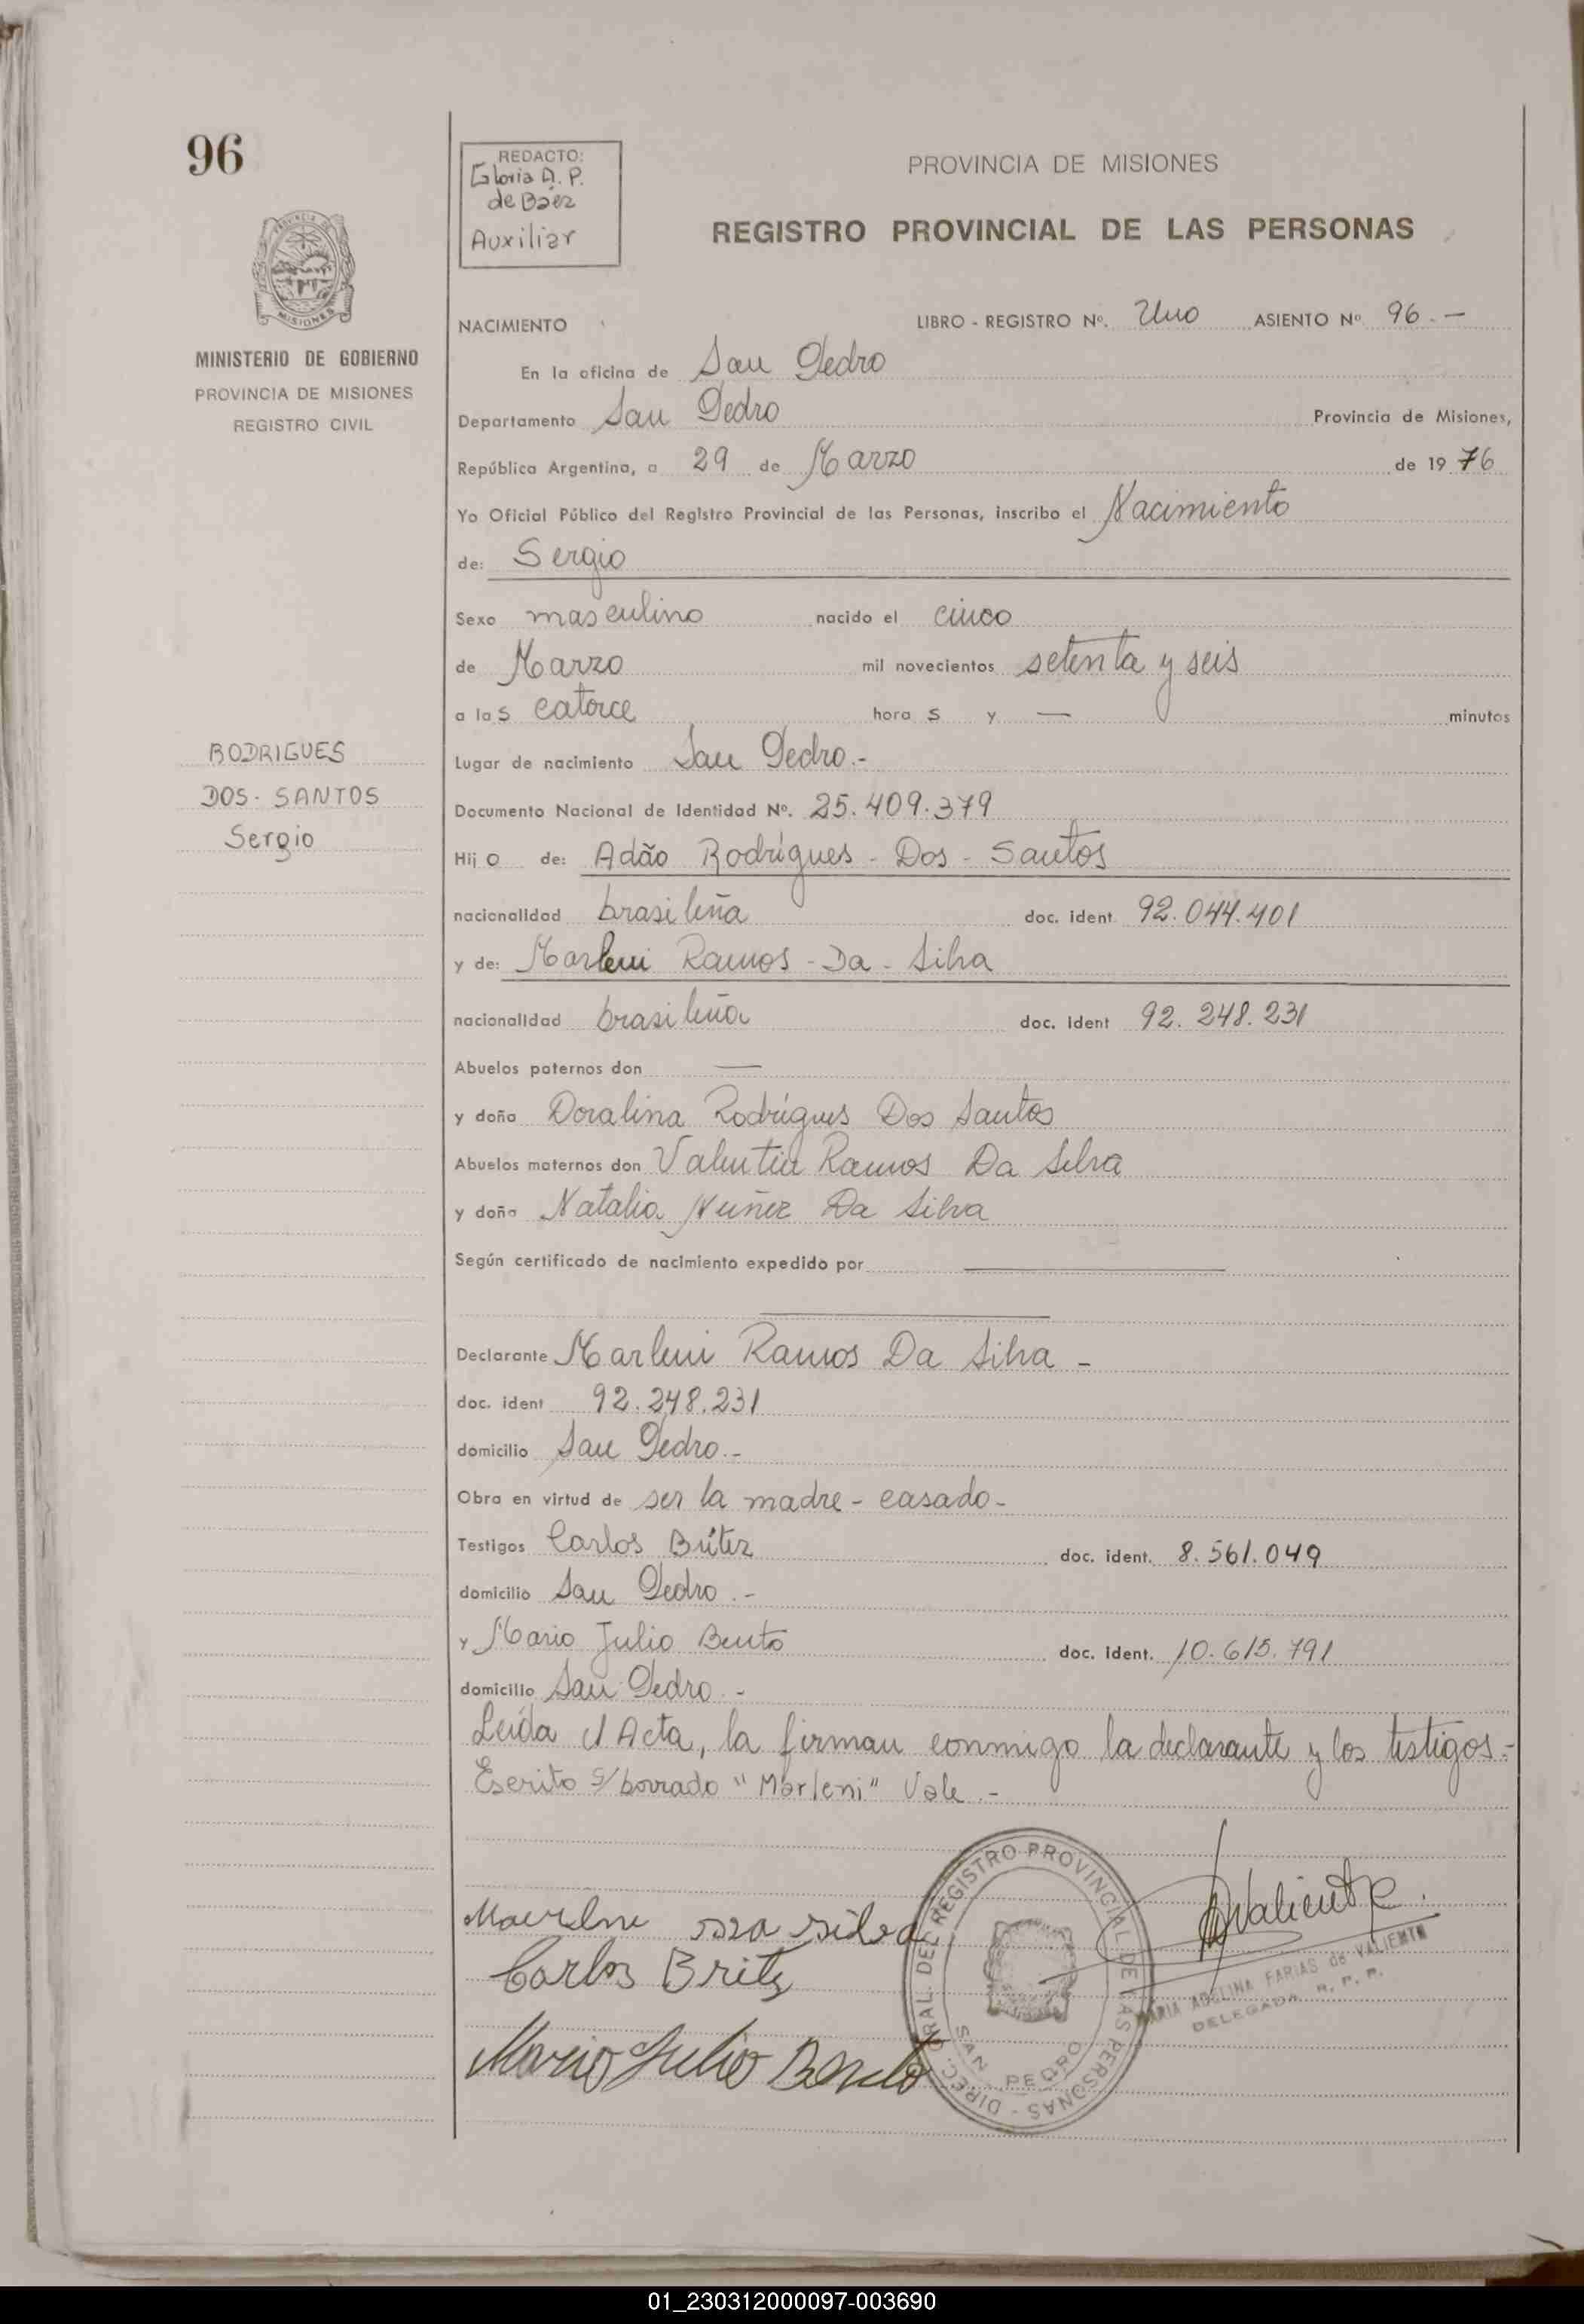 96
REDACTO:
Gloria A. P.
de Báez
Auxiliar
PROVINCIA DE MISIONES
REGISTRO PROVINCIAL DE LAS PERSONAS
MINISTERIO DE GOBIERNO
PROVINCIA DE MISIONES
REGISTRO CIVIL
NACIMIENTO LIBRO - REGISTRO Nº. Uno ASIENTO Nº 96.-
En la oficina de San Pedro
Departamento San Pedro Provincia de Misiones,
República Argentina, a 29 de Marzo de 1976
Yo Oficial Público del Registro Provincial de las Personas, inscribo el Nacimiento
de: Sergio
Sexo masculino nacido el cinco
de Marzo mil novecientos setenta y seis
a las catorce horas y — minutos
RODRIGUES
DOS-SANTOS
Sergio
Lugar de nacimiento San Pedro.-
Documento Nacional de Identidad Nº. 25.409.379
Hijo de: Adão Rodrígues - Dos - Santos
nacionalidad brasileña doc. ident. 92.044.401
y de: Marleni Ramos - Da - Silva
nacionalidad brasileña doc. ident 92.248.231
Abuelos paternos don —
y doña Doralina Rodrígues Dos Santos
Abuelos maternos don Valentin Ramos Da Silva
y doña Natalia Nuñez Da Silva
Según certificado de nacimiento expedido por
Declarante Marleni Ramos Da Silva -
doc. ident 92.248.231
domicilio San Pedro.-
Obra en virtud de ser la madre - casado-
Testigos Carlos Brítez doc. ident. 8.561.049
domicilio San Pedro.-
y Mario Julio Bento doc. ident. 10.615.791
domicilio San Pedro.-
Leída el Acta, la firman conmigo la declarante y los testigos.-
Escrito s/borrado "Marleni" Vale.-
Carlos Britz
Mario Julio Bento
AValiente
MARIA ADELINA FARIAS de VALIENTE
DELEGADA R. P. P.
DIREC. GRAL. DEL REGISTRO PROVINCIAL DE LAS PERSONAS -
SAN PEDRO
01_230312000097-003690